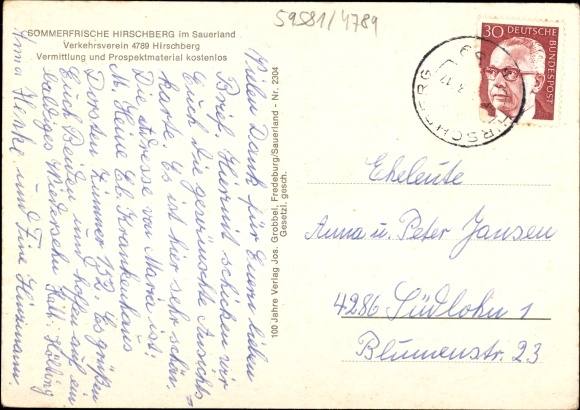 59581/4789
SOMMERFRISCHE HIRSCHBERG im Sauerland
Verkehrsverein 4789 Hirschberg
Vermittlung und Prospektmaterial kostenlos
30 DEUTSCHE BUNDESPOST
HIRSCHBERG
Vielen Dank für Euren lieben
Brief. Hiermit schicken wir
Euch die gewünschte Ansichts
karte. Es ist hier sehr schön.
Die Adresse von Maria ist:
M. Heine Eb. Krankenhaus
Dorsten Zimmer 152. Es grüßen
Euch Beiden und hoffen auf ein
baldiges Wiedersehn Kath.
Anna und Fine
100 Jahre Verlag Jos. Grobbel, Fredeburg/Sauerland - Nr. 2304
Gesetzl. gesch.
Eheleute
Anna u. Peter Jansen
4286 Südlohn 1
Blumenstr. 23